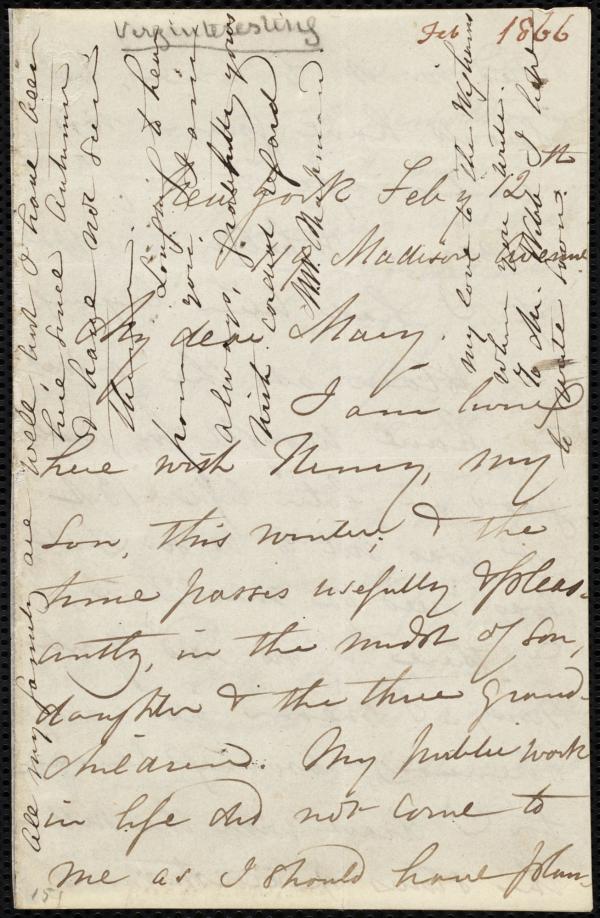 Very interesting
Feb 1866
New York Feby 12th
Madison Avenue
My dear Mary.
I am living
here with Henry, my
son, this winter, & the
time passes usefully & pleas-
antly, in the midst of son,
daughter & the three grand-
children. My public work
in life did not come to
me as I should have plan-
All my family are well, but I have been
here since Autumn
& have not seen
them.
Longing to hear
from you, I am
always, gratefully yours
with cordial regard
M W Chapman
My love to the Wighams
when you write.
to Mr. Webb I hope
to write soon.
151